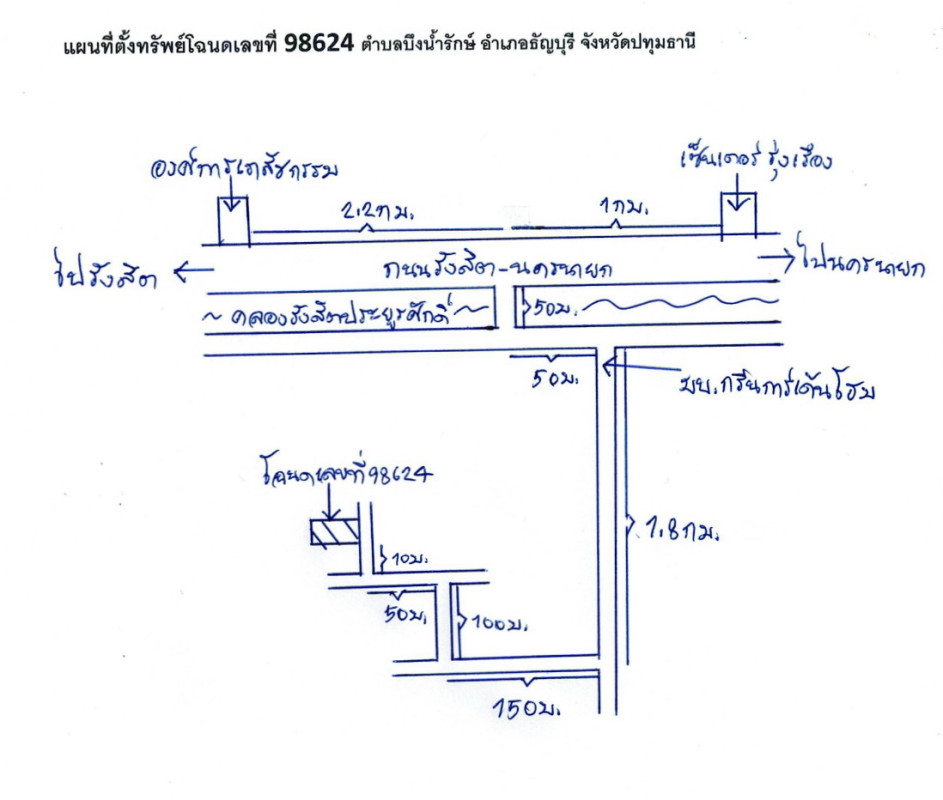 แผนที่ตั้งทรัพย์โฉนดเลขที่ 98624 ตำบลบึงน้ำรักษ์ อำเภอธัญบุรี จังหวัดปทุมธานี
องค์การเภสัชกรรม
เซ็นเตอร์ รุ่งเรือง
2.2กม.
1กม.
ไปรังสิต
ถนนรังสิต-นครนายก
ไปนครนายก
คลองรังสิตประยูรศักดิ์
50ม.
50ม.
มบ.กรีนการ์เด้นโฮม
โฉนดเลขที่98624
1.8กม.
10ม.
50ม.
100ม.
150ม.